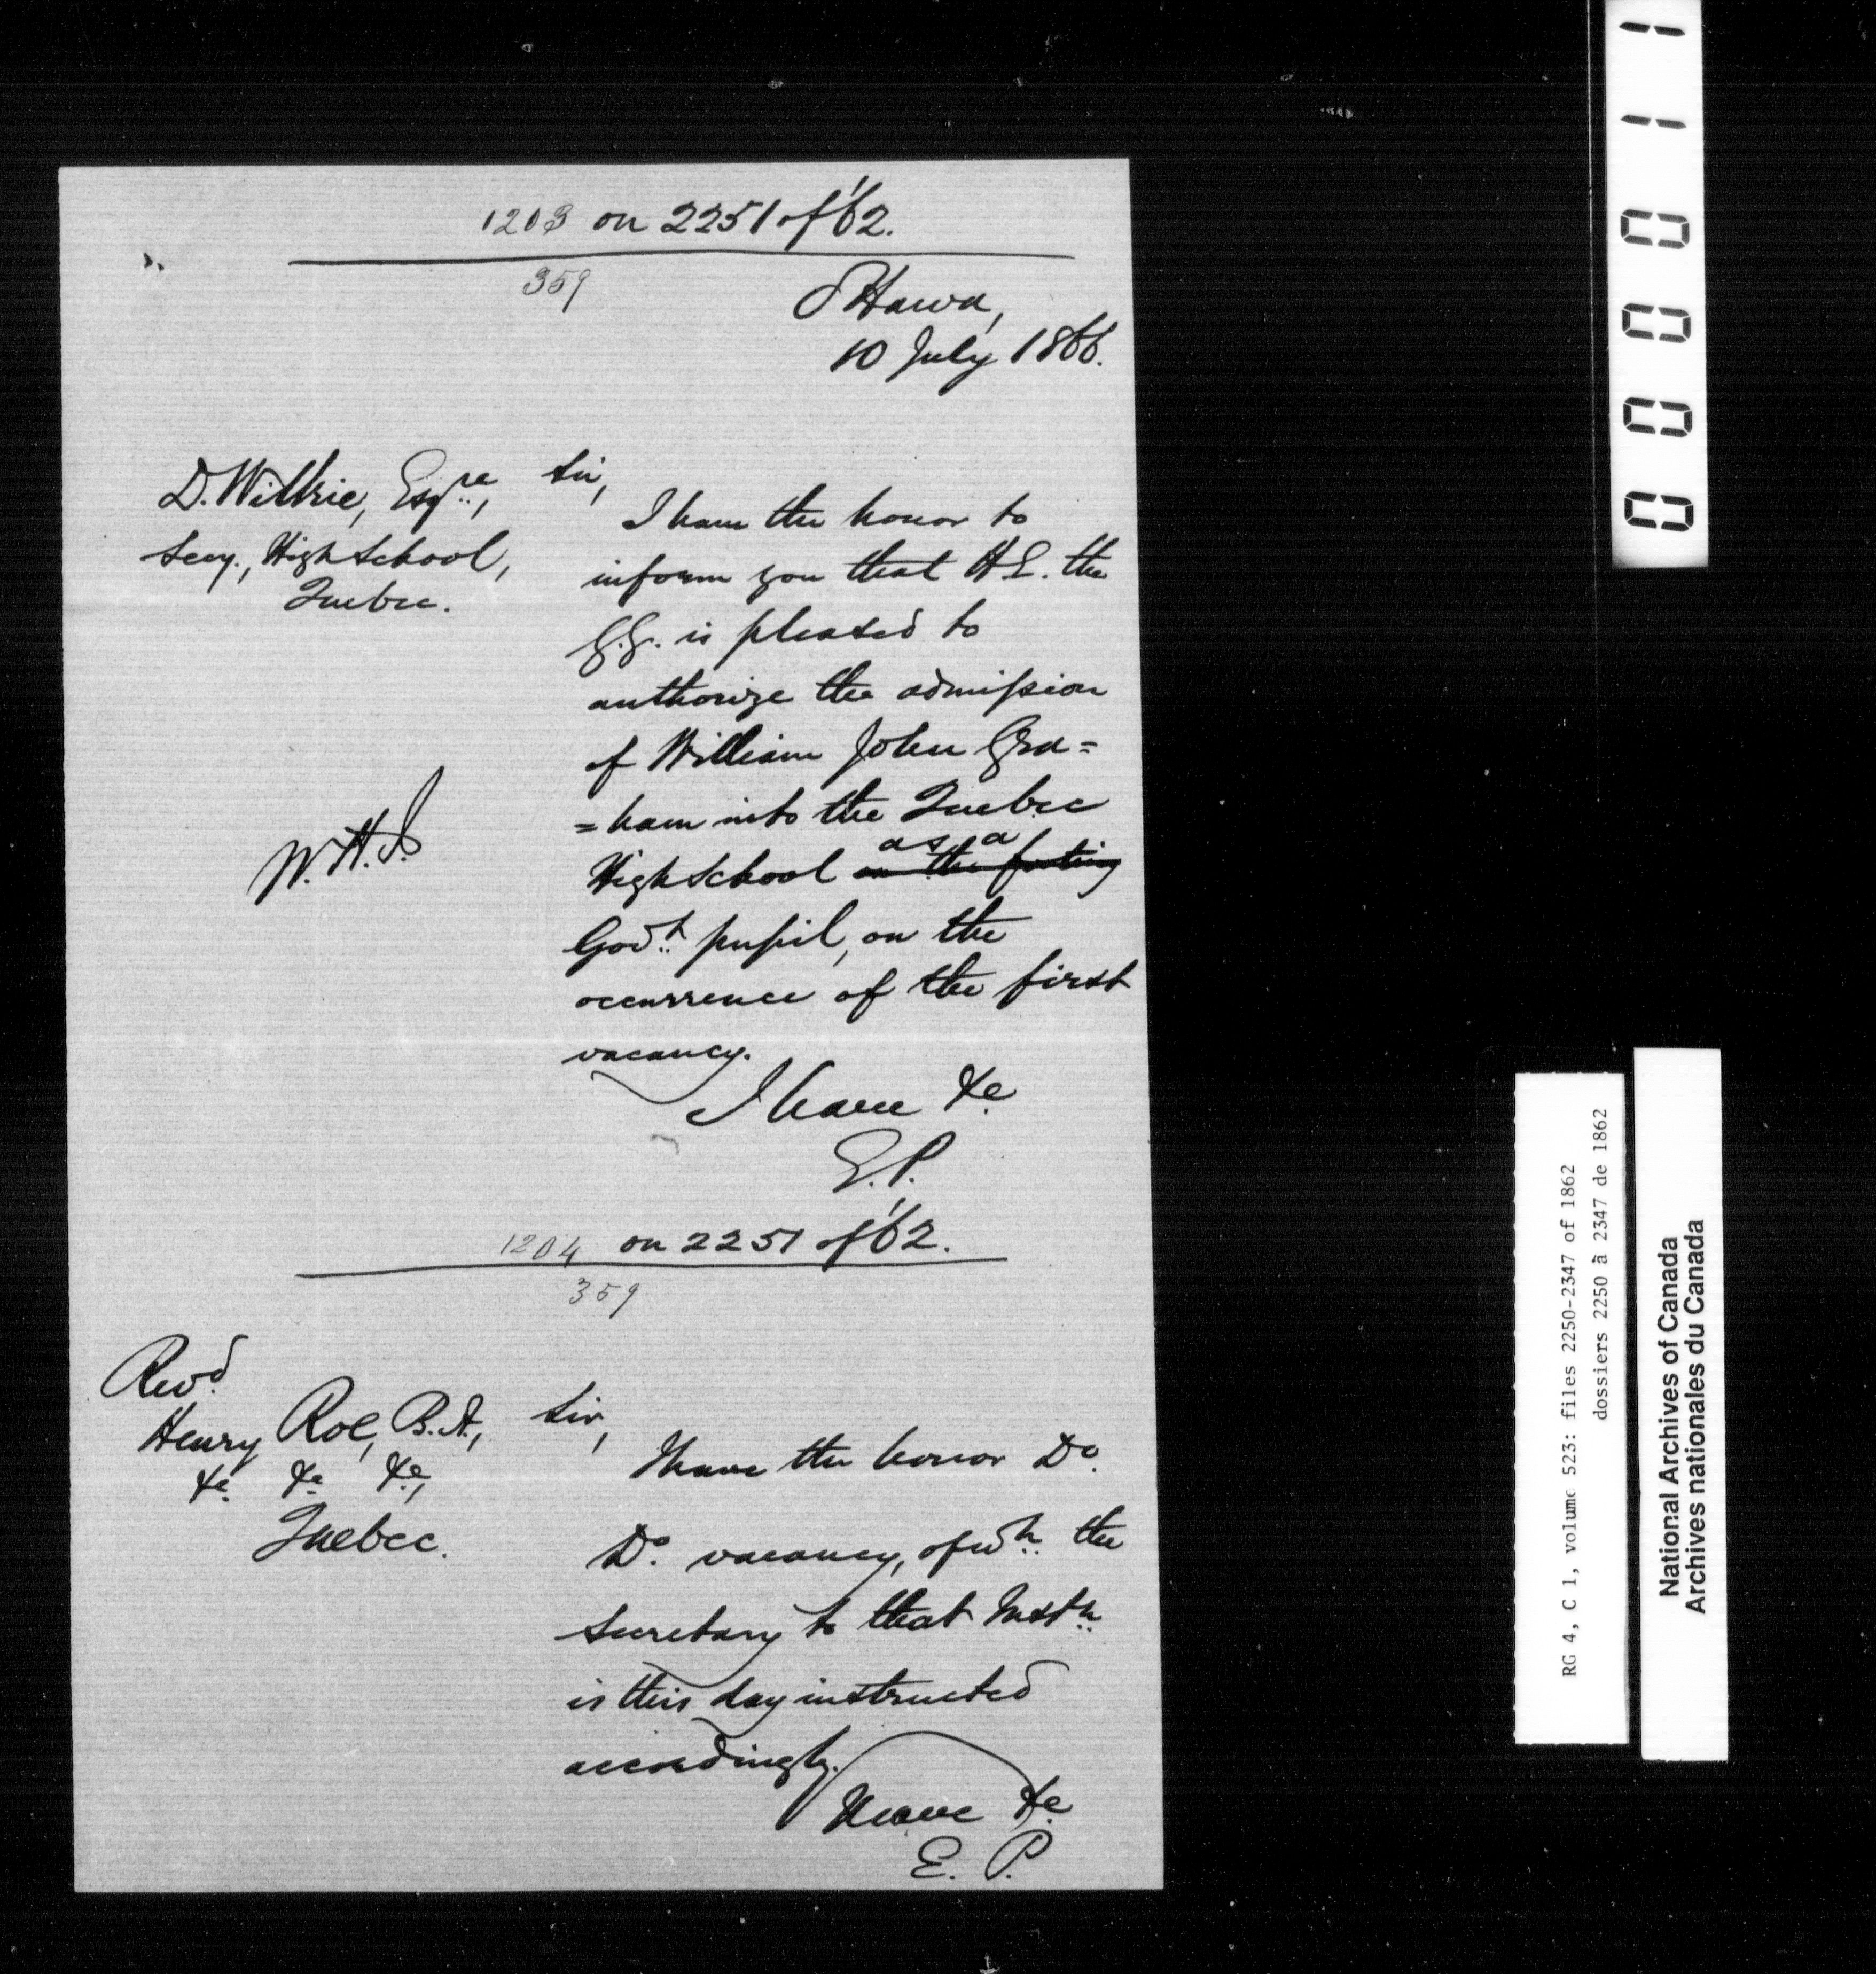 1203 on 2251 of '62.
359
Ottawa,
10 July 1866.
D. Wilkie, Esqre,
Secy., High School,
Quebec.
Sir,
I have the honor to
inform you that H.E. the
G.G. is pleased to
authorize the admission
of William John Gra=
=ham into the Quebec
as a
High School on the footing
Govt. pupil, on the
occurrence of the first
vacancy.
I have &c
E.P.
W.H.J.
1204 on 2251 of '62.
359
Revd.
Henry Roe, B.A.,
&c. &c. &c.,
Quebec.
Sir,
I have the honor Do.
Do. vacancy, of wh. the
Secretary to that Instn.
is this day instructed
accordingly.
I have &c.
E. P.
000011
RG 4, C 1, volume 523: files 2250-2347 of 1862
dossiers 2250 à 2347 de 1862
National Archives of Canada
Archives nationales du Canada